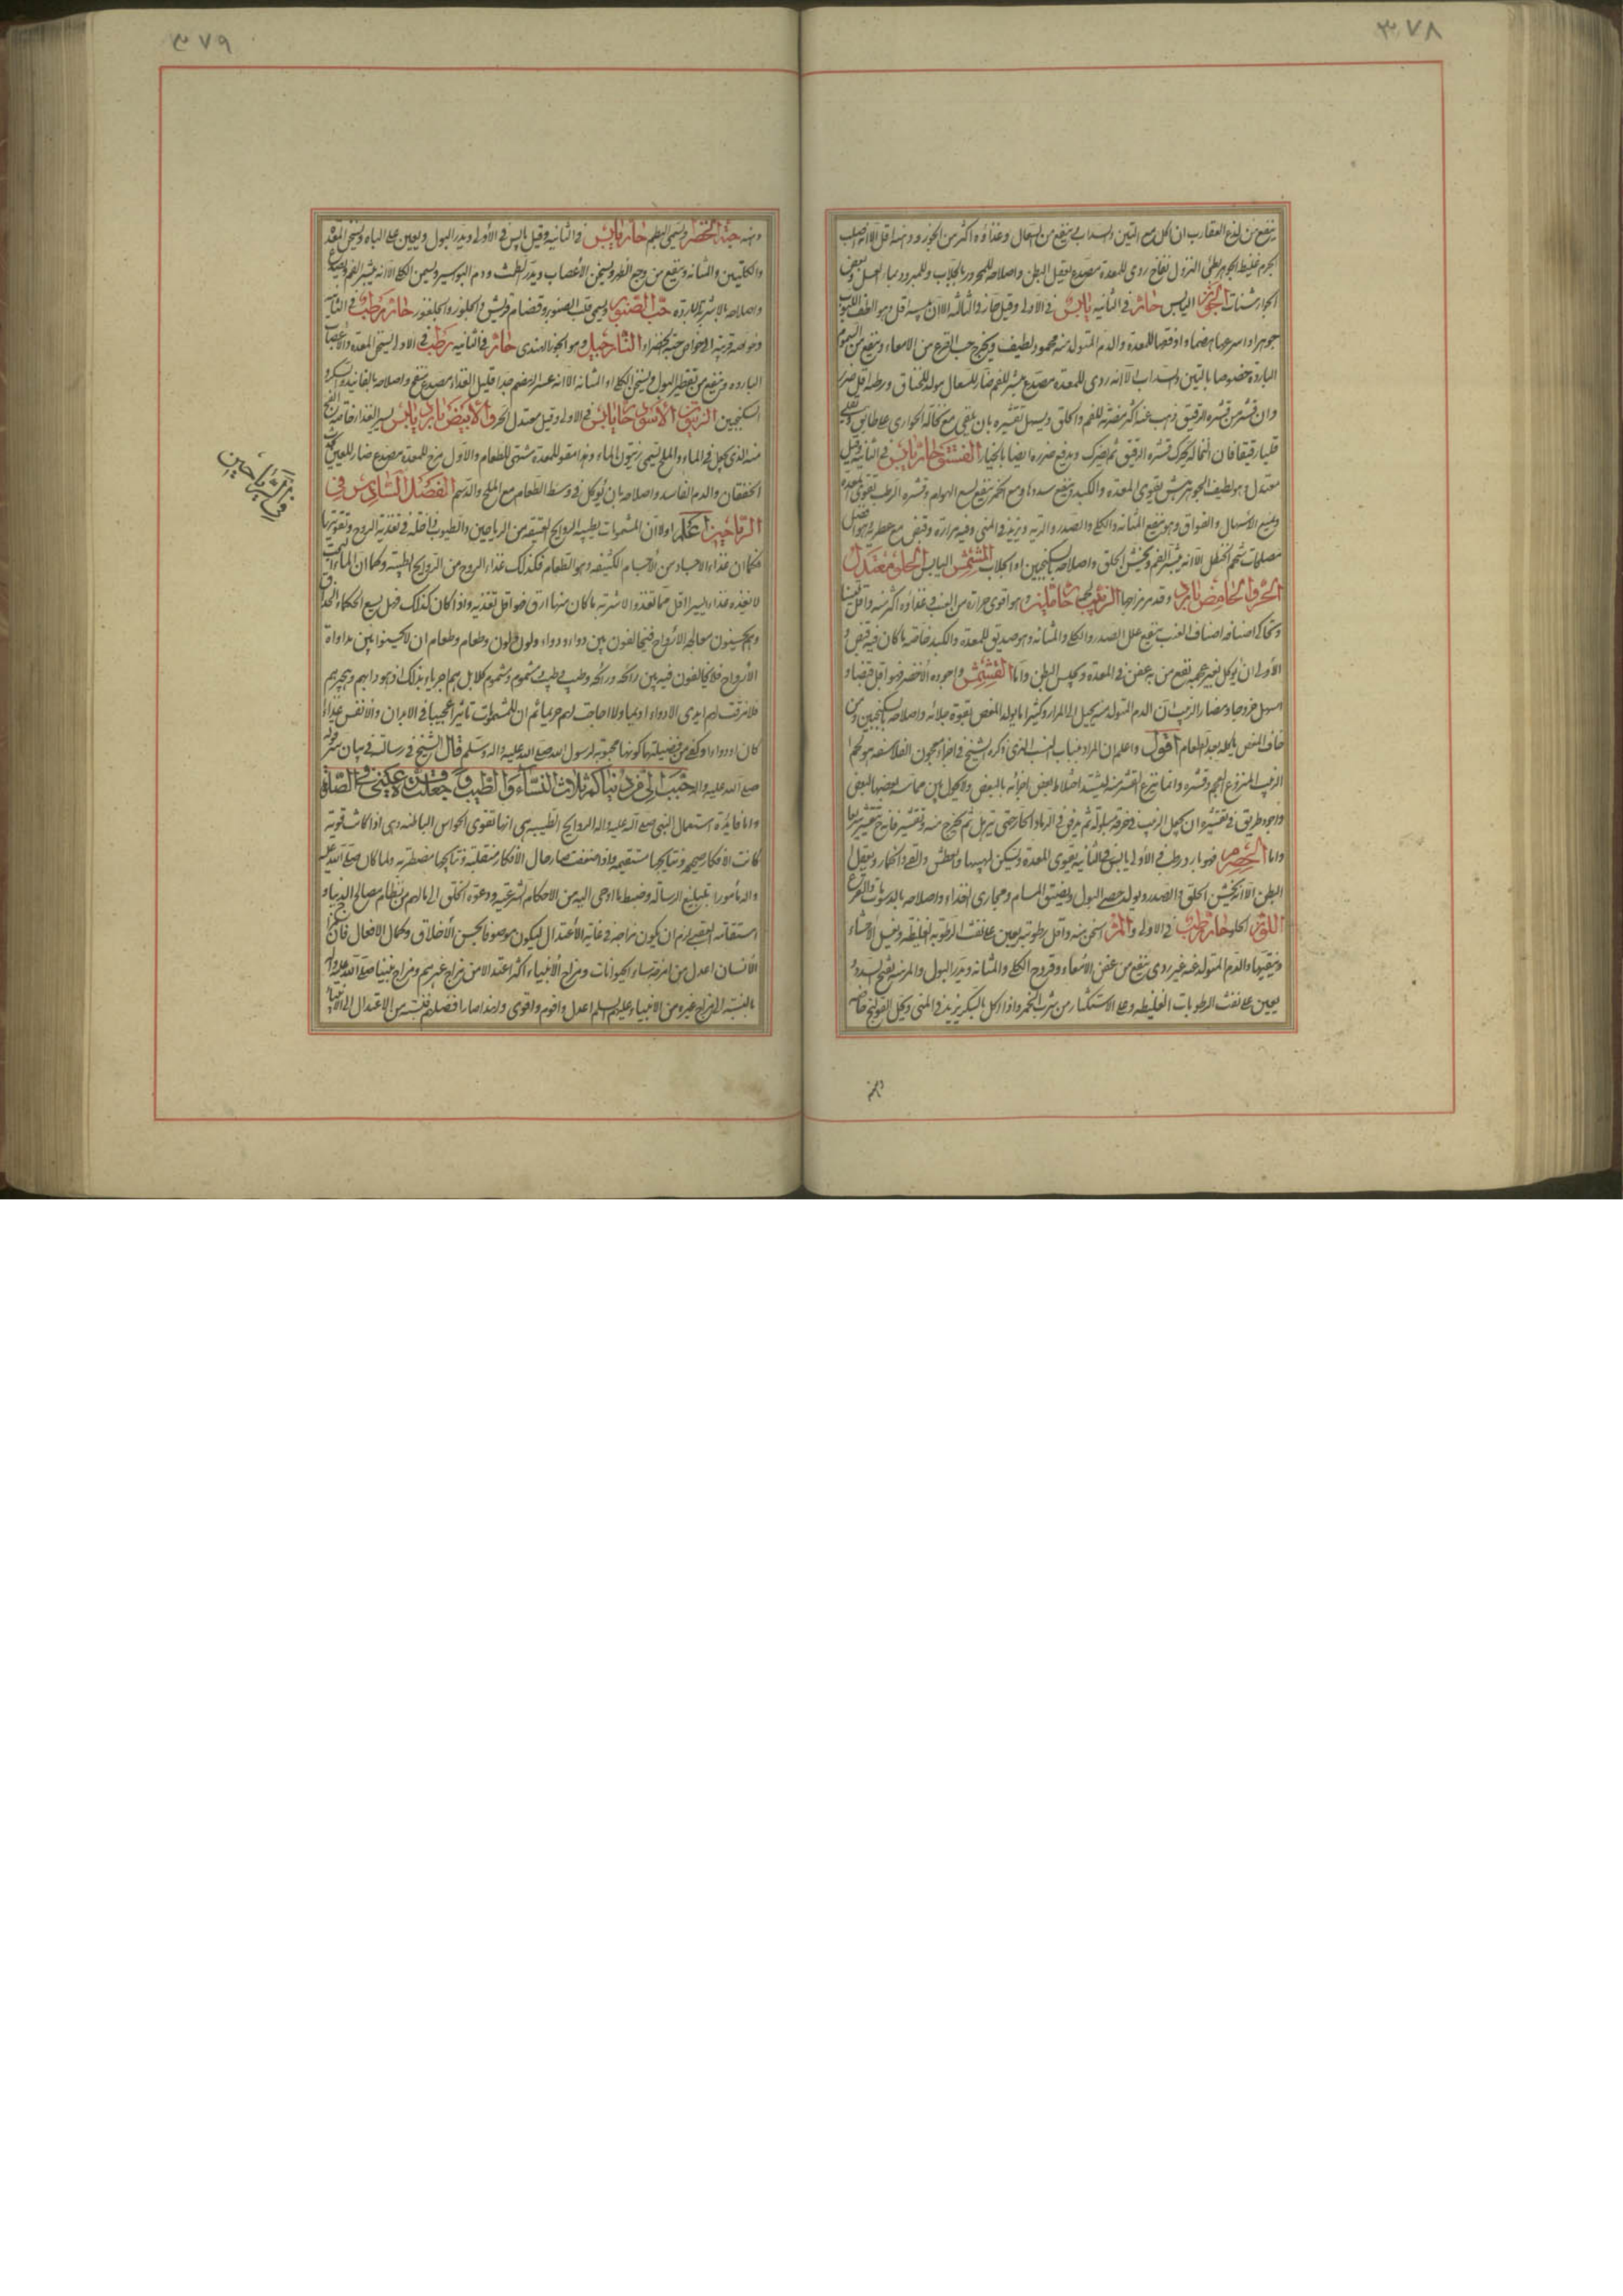 ٣٧٨
ينفع من لدغ العقارب ان اكل مع التين والسداب وينفع من السعال وغذاؤه اكثر من الجوز ودهنه اقل الا انه اصلب
الجرم غليظ الجوهر بطئ النزول نفاخ ردى للمعدة مصدع يعقل البطن واصلاحه للمحرور بالجلاب وللمبرود بماء العسل وبعض
الجوارشنات الجوز اليابس حار في الثانيه يابس في الاولى وقيل حار في الثالثه الا ان يبسه اقل وهو الطف اللبوب
جوهرا واسرعها هضما واوفقها للمعدة والدم المتولد منه محمود لطيف ويخرج حب القرع من الامعاء وينفع من السموم
البارده خصوصا بالتين والسداب الا انه ردى للمعدة مصدع مبثر للفم ضار للسعال مولد للخناق ورطبه اقل ضررا
وان قشر من قشره الرقيق ذهب عنه اكثر مضرته للفم والحلق ويسهل تقشيره بان يلقى مع نخالة الحوارى على طابق ويقلى
قليلا رقيقا فان النخاله تحرك قشره الرقيق ويدفع ضرره ايضا بالخيار الفستق حار يابس في الثانيه وقيل
معتدل وهو لطيف الجوهر يقوى المعدة والكبد ويفتح سددها ومع الخمر ينفع لسع الهوام وقشره الرطب تقوى المعدة
ويمنع الاسهال والفواق وهو ينفع المثانه والكلى والصدر والريه ويزيد في المنى وفيه مرارة وقبض مع عطريه وهو افضل
مصلحات شحم الحنظل الا انه يبثر الفم ويخشن الحلق واصلاحه بسكنجبين او الجلاب المشمش اليابس الحلو معتدل
الحر والحامض بارد وقد مر مزاجها الزبيب حار لين وهو اقوى حرارة من العنب وغذاؤه اكثر منه واقل تليينا
وتحاكى اصنافه اصناف العنب ينفع علل الصدر والكلى والمثانه وهو صديق للمعدة والكبد خاصه ما كان فيه قبض و
الاولى ان يؤكل بغير عجمه نفع من به عفن في المعدة ويحبس البطن واما القشمش واجوده الاخضر فهو اقل قبضا و
اسهل خروجا ومضار الزبيب ان الدم المتولد منه يحيل الى المرار وكثيرا ما يولد المغص لقوة جلائه واصلاحه بسكنجبين ومن
خاف المغص ياكله بعد الطعام اقول واعلم ان المراد بلباب الزبيب الذى ذكره الشيخ في اجزاء معجون الفلاسفه هو لحم
الزبيب المنزوع العجم وقشره وانما ينزع القشر منه ليشتد اختلاط بعض اجزائه بالبعض ولا يحول بين مماسة بعضها لبعض
واجود طريق في تقشيره ان يجعل الزبيب في خرقه مبلوله ثم يدفن في الرماد الحار حتى يترهل ثم يخرج منه وتقشير فانه ح يتقشير سريعا
واما الحصرم فهو بارد رطب في الاولى يابس في الثانيه يقوى المعدة ويسكن لهيبها والعطش والقى والخمار ويعقل
البطن الا انه يخشن الحلق والصدر ويولد حصى البول ويضيق المسام ومجارى الغذاء واصلاحه بالدسومات والقرع
اللوز الحلو حار رطب في الاولى والمر اسخن منه واقل رطوبته يعين على نفث الرطوبه الغليظه ويغسل الاحشاء
وينقيها والدم المتولد عنه غير ردى ينفع من عفن الامعاء وقروح الكلى والمثانه ويدر البول والمر منه يفتح السدد و
يعين على نفث الرطوبات الغليظه وعلى الاستكثار من شرب الخمر واذا اكل بالسكر يزيد في المنى ويحل القولنج خاصه
دهنه
٣٧٩
دهنه حبة الخضراء وتسمى البطم حار يابس في الثانيه وقيل يابس في الاولى ويدر البول ويعين على الباه ويسخن المعدة
والكليتين والمثانه وينفع من وجع الظهر ويسخن الاعصاب ويدر الطمث ودم البواسير ويسمن الكلى الا انه يبثر الفم ويصدع
واصلاحه بالاشربة البارده حب الصنوبر ويسمى قلب الصنوبر وقضم قريش والجلوز والجلغوز حار رطب في الثانيه
وخواصه قريبه الى خواص حبة الخضراء النارجيل وهو الجوز الهندى حار في الثانيه رطب في الاولى يسخن المعدة والاعصاب
البارده وينفع من تقطير البول ويسخن الكلى والمثانه الا انه عسر الهضم جدا قليل الغذاء مصدع منفخ واصلاحه بالفانيد والسكر و
السكنجبين الزيتون الاسود حار يابس في الاولى وقيل معتدل الحر والابيض بارد يابس يسير الغذاء خاصه الفج
منه الذى يجعل في الماء والملح ويسمى زيتون الماء وهذا مقو للمعدة مشتهى للطعام والاول مرخ للمعدة مصدع ضار للعين يحدث
الخفقان والدم الفاسد واصلاحه بان يؤكل في وسط الطعام مع الملح والدسم الفصل السادس في
الرياحين اعلم اولا ان المشمومات الطيبة الروايح العبقه من الرياحين والطيوب داخله في تغذية الروح وتقويتها
فكما ان غذاء الاجساد من الاجسام الكثيفه وهو الطعام فكذلك غذاء الروح من الروايح الطيبة وكما ان الماء البحت
لا يغذو غذاء يسيرا اقل مما تغذو الاشربه ما كان منها ارق فهو اقل تغذيه واذا كان كذلك فهل يسع الحكماء الحذاق
وهم يحسنون معالجه الارواح فيخالفون بين دواء ودواء ولون ولون وطعام وطعام ان لا يحسنوا بين مداواة
الارواح فلا يخالفون فيه بين رائحه ورائحه وطيب وطيب ومشموم ومشموم كلا بل هم احرياء بذلك اذ هو دابهم وهجيريهم
فلا فرقت لهم ايدى الادواء اديما ولا اباحت لهم حريما ثم ان للمشمومات تاثيرا عجيبا في الابدان والانفس غذاء
كان او دواء وكفى من فضيلتها كونها محبوبه لرسول الله صلى الله عليه واله وسلم قال الشيخ في رسالته في بيان سر قوله
صلى الله عليه واله حبب الى من دنياكم ثلاث النساء والطيب وجعلت قرة عينى في الصلوة
واما فائدة استعمال النبى صلى الله عليه واله الروايح الطيبه هى انها تقوى الحواس الباطنه وهى اذا كانت قويه
كانت الافكار صحيحه ونتايجها مستقيمه واذا ضعفت صارحال الافكار منقلبه ونتايجها مضطربه ولما كان صلى الله عليه
واله مأمورا بتبليغ الرساله وضبط ما اوحى اليه من الاحكام الشرعيه ودعوة الخلق الى ما لهم من نظام مصالح الدنيا و
استقامة العقبى لزم ان يكون مزاجه في غايه الاعتدال ليكون موصوفا بحسن الاخلاق وكمال الافعال فان مزاج
الانسان اعدل من امزجة سائر الحيوانات ومزاج الانبياء اكثر اعتدالا من مزاج غيرهم ومزاج نبينا صلى الله عليه واله
بالنسبة الى مزاج غيره من الانبياء عليهم السلم اعدل واقوم واقوى ولهذا صار افضلهم فنسبته من الاعتدال الى الانبياء
في الرياحين